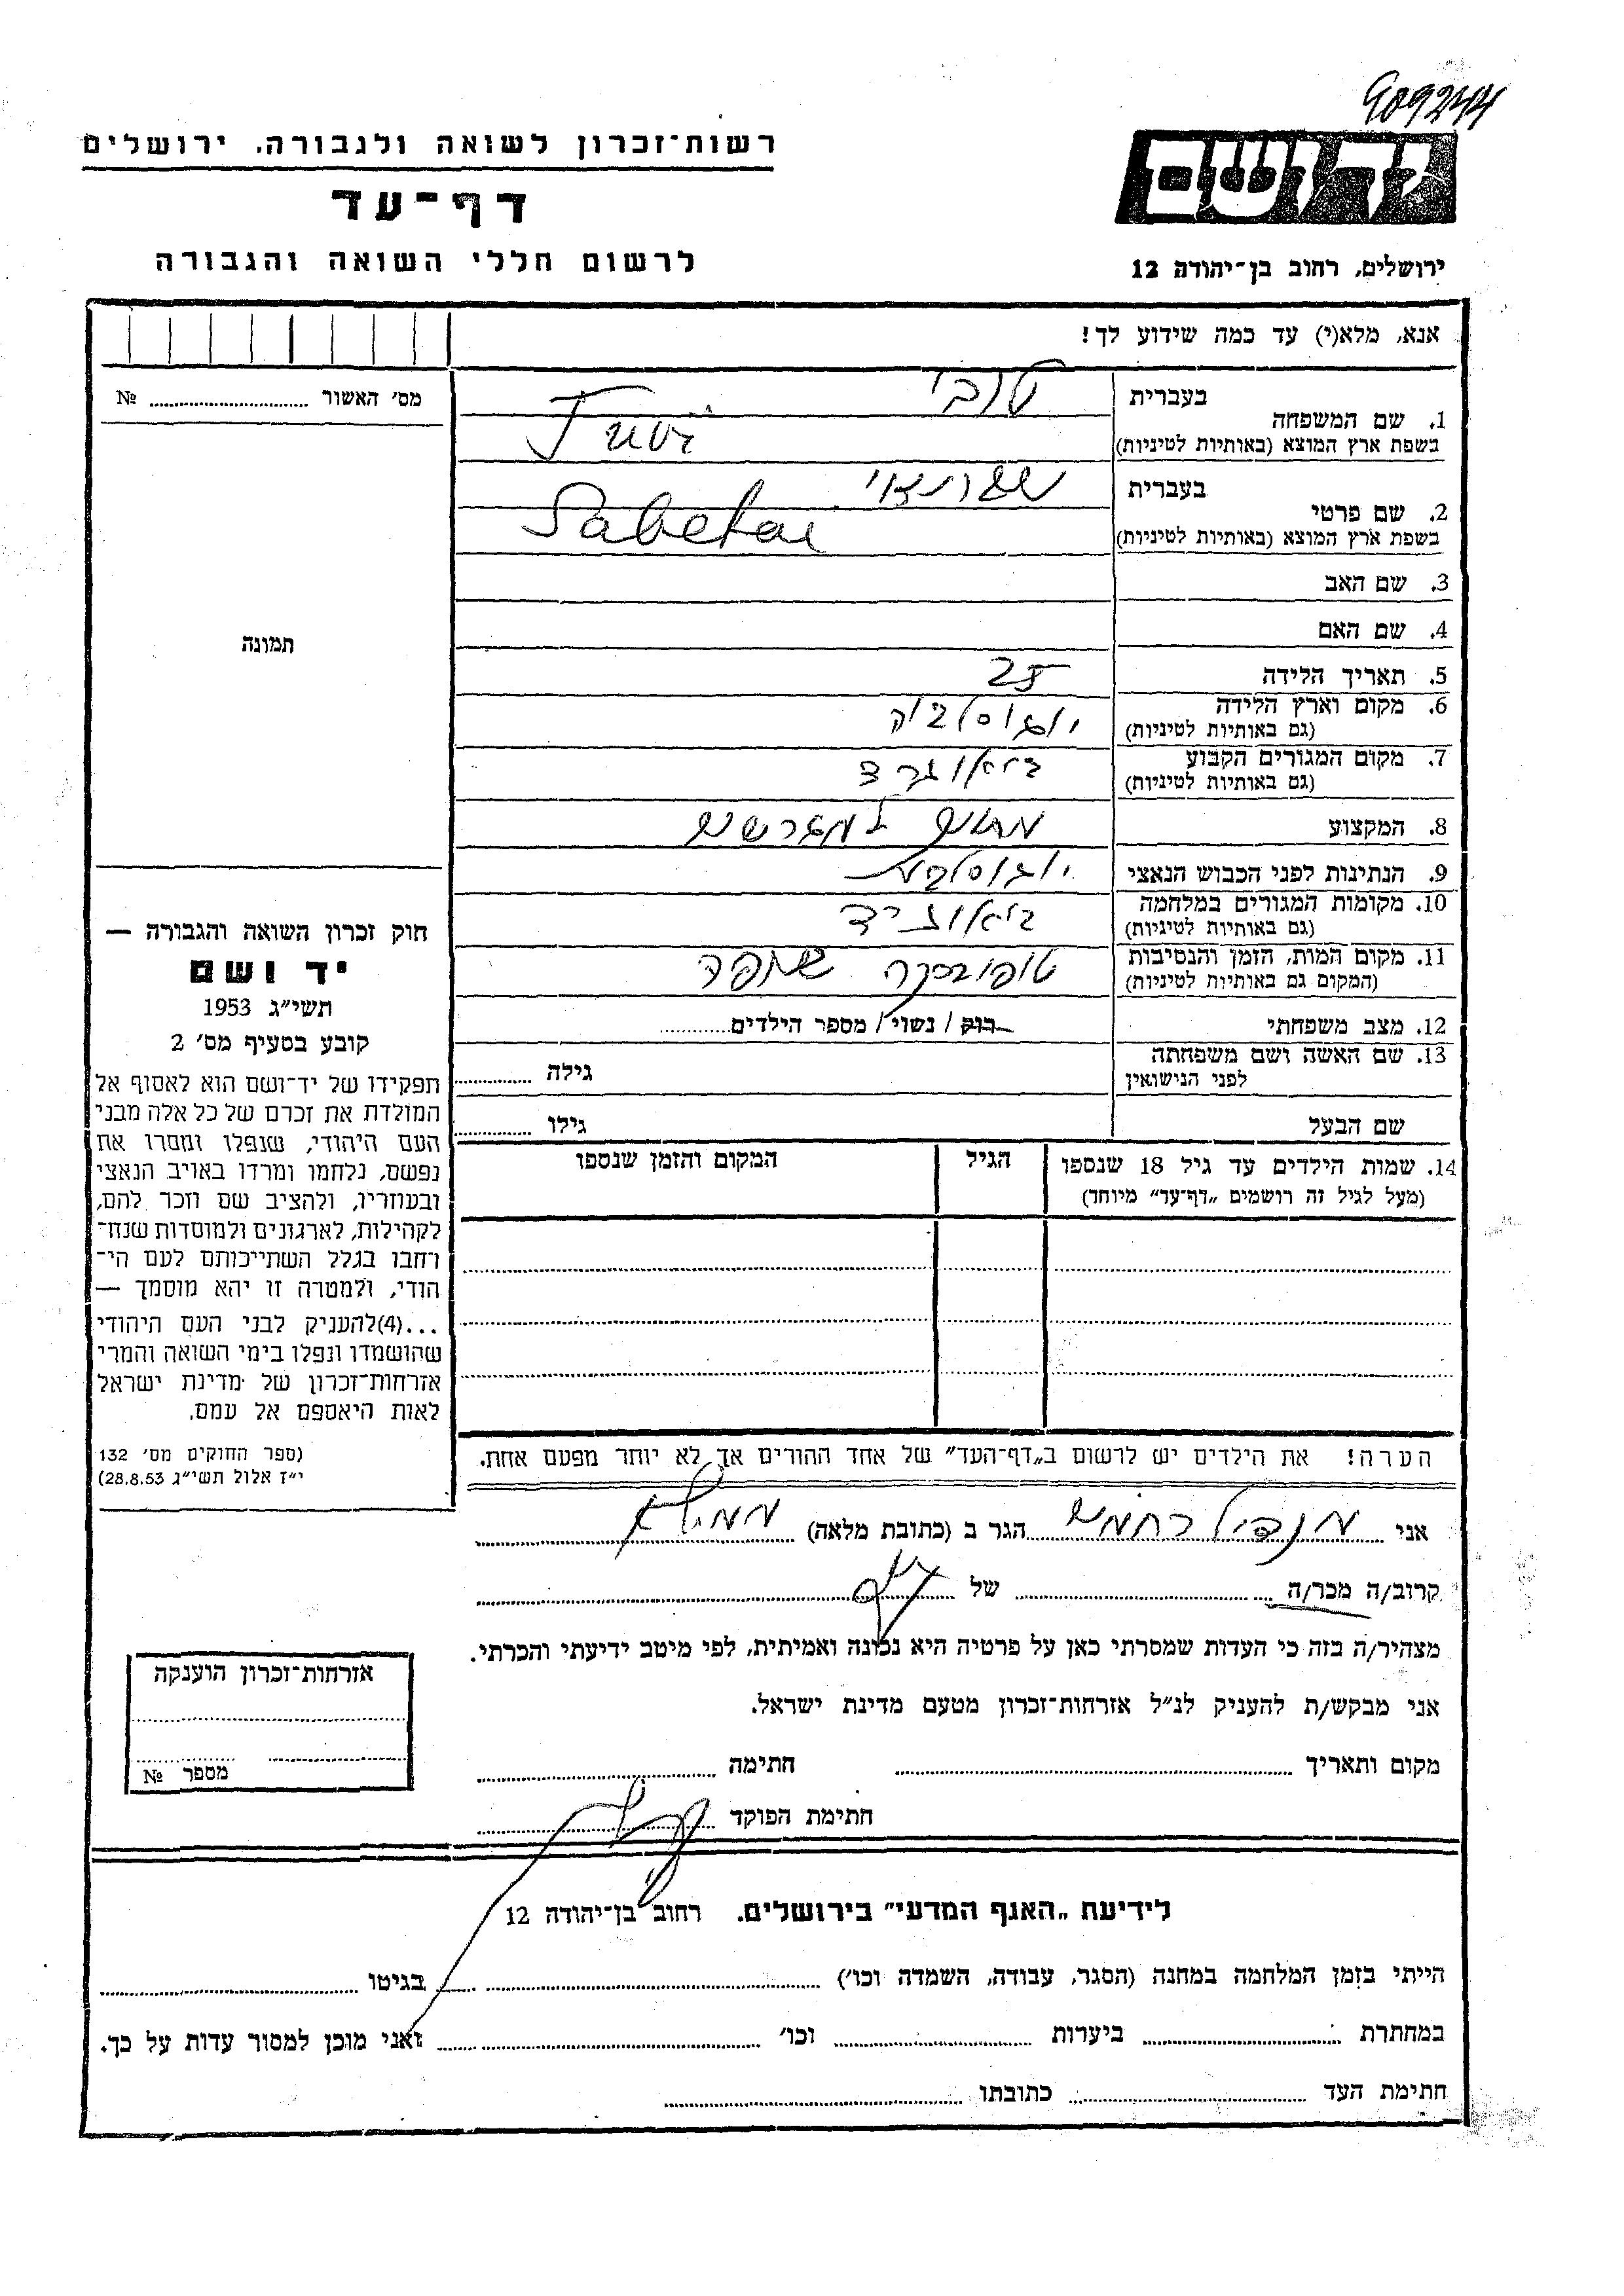 909244
רשות־זכרון לשואה ולגבורה. ירושלים
דף־עד
לרשום חללי השואה והגבורה
יד ושם
ירושלים, רחוב בן־יהודה 12
אנא, מלא(י) עד כמה שידוע לך!
מס׳ האשור №
תמונה
בעברית טובי
1. שם המשפחה
בשפת ארץ המוצא (באותיות לטיניות) Tuvi
בעברית
2. שם פרטי
בשפת ארץ המוצא (באותיות לטיניות) Sabetai
3. שם האב
4. שם האם
5. תאריך הלידה 25
6. מקום וארץ הלידה יוגוסלביה
(גם באותיות לטיניות)
7. מקום המגורים הקבוע
(גם באותיות לטיניות)
8. המקצוע
9. הנתינות לפני הכבוש הנאצי
10. מקומות המגורים במלחמה
(גם באותיות לטיניות)
11. מקום המות, הזמן והנסיבות
(המקום גם באותיות לטיניות)
12. מצב משפחתי רוק / נשוי / מספר הילדים
13. שם האשה ושם משפחתה
לפני הנישואין גילה
שם הבעל גילו
14. שמות הילדים עד גיל 18 שנספו הגיל המקום והזמן שנספו
(מעל לגיל זה רושמים „דף־עד” מיוחד)
הערה! את הילדים יש לרשום ב„דף־העד” של אחד ההורים אך לא יותר מפעם אחת.
חוק זכרון השואה והגבורה —
יד ושם
תשי״ג 1953
קובע בסעיף מס׳ 2
תפקידו של יד־ושם הוא לאסוף אל
המולדת את זכרם של כל אלה מבני
העם היהודי, שנפלו ומסרו את
נפשם, נלחמו ומרדו באויב הנאצי
ובעוזריו, ולהציב שם וזכר להם,
לקהילות, לארגונים ולמוסדות שנח־
רחבו בגלל השתייכותם לעם הי־
הודי, ולמטרה זו יהא מוסמך —
...(4)להעניק לבני העם היהודי
שהושמדו ונפלו בימי השואה והמרי
אזרחות־זכרון של מדינת ישראל
לאות היאספם אל עמם.
(ספר החוקים מס׳ 132
י״ז אלול תשי״ג 28.8.53)
אני הגר ב (כתובת מלאה)
קרוב/ה מכר/ה של
מצהיר/ה בזה כי העדות שמסרתי כאן על פרטיה היא נכונה ואמיתית, לפי מיטב ידיעתי והכרתי.
אני מבקש/ת להעניק לנ״ל אזרחות־זכרון מטעם מדינת ישראל.
מקום ותאריך חתימה
חתימת הפוקד
אזרחות־זכרון הוענקה
מספר №
לידיעת „האגף המדעי” בירושלים. רחוב בן־יהודה 12
הייתי בזמן המלחמה במחנה (הסגר, עבודה, השמדה וכו׳) בגיטו
במחתרת ביערות וכו׳ ואני מוכן למסור עדות על כך.
חתימת העד כתובתו